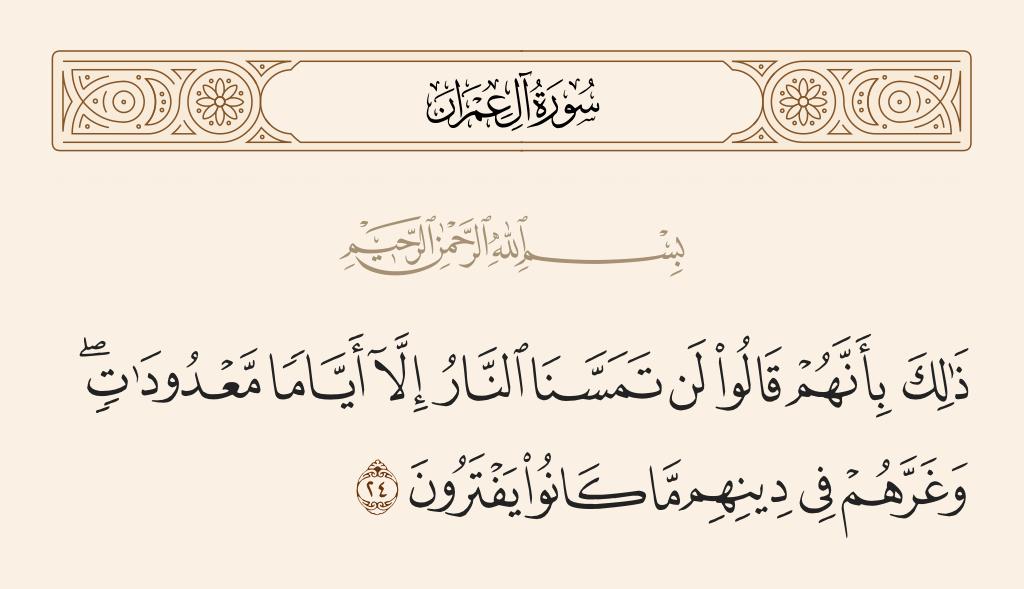 سُورَةُ آلِ عِمْرَان
بِسْمِ ٱللَّهِ ٱلرَّحْمَٰنِ ٱلرَّحِيمِ
ذَٰلِكَ بِأَنَّهُمْ قَالُوا۟ لَن تَمَسَّنَا ٱلنَّارُ إِلَّآ أَيَّامًا مَّعْدُودَٰتٍ ۖ
وَغَرَّهُمْ فِى دِينِهِم مَّا كَانُوا۟ يَفْتَرُونَ ٢٤